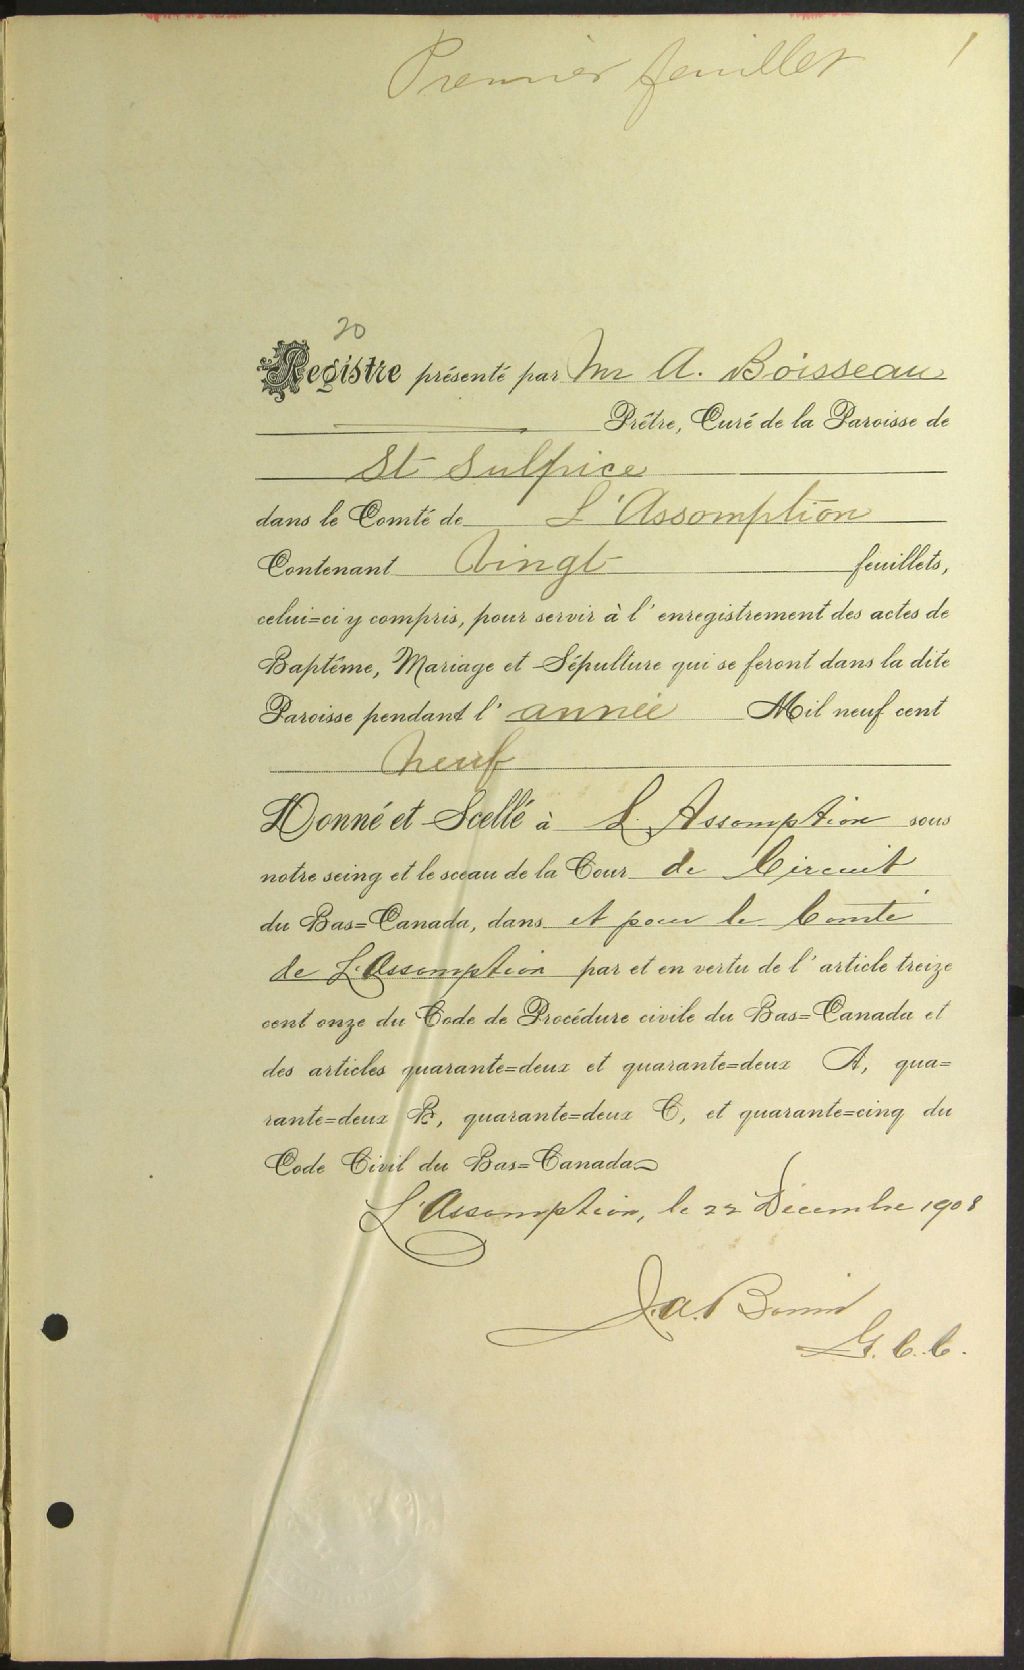 Premier feuillet 1
20
Registre présenté par Mr A. Boisseau
Prêtre, Curé de la Paroisse de
St Sulpice
dans le Comté de L'Assomption
Contenant Vingt feuillets,
celui=ci y compris, pour servir à l'enregistrement des actes de
Baptême, Mariage et Sépulture qui se feront dans la dite
Paroisse pendant l'année Mil neuf cent
neuf
Donné et Scellé à L'Assomption sous
notre seing et le sceau de la Cour de Circuit
du Bas=Canada, dans et pour le Comté
de L'Assomption par et en vertu de l'article treize
cent onze du Code de Procédure civile du Bas=Canada et
des articles quarante=deux et quarante=deux A, qua=
rante=deux B, quarante=deux C, et quarante=cinq du
Code Civil du Bas=Canada
L'Assomption, le 22 Décembre 1908
J. A. Bonin
G. C. C.